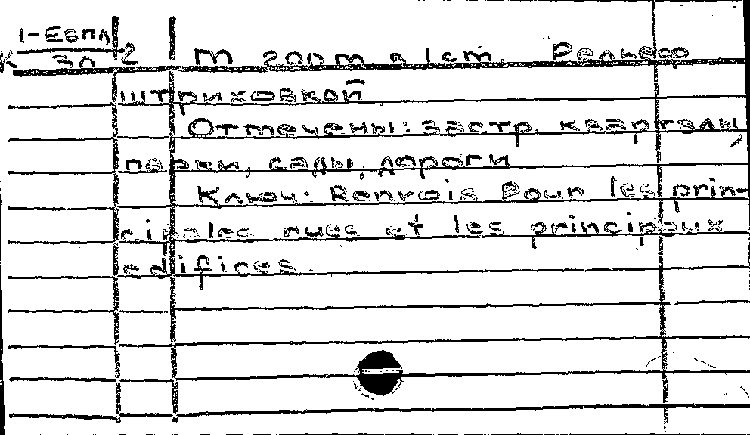 1-Евпл
К 30 2 М 200 m в 1 cm. Рельеф
штриховкой
Отмечены: застр. кварталы,
парки, сады, дороги
Ключ: Renvois Pour les prin-
cipales rues et les principaux
edifices.